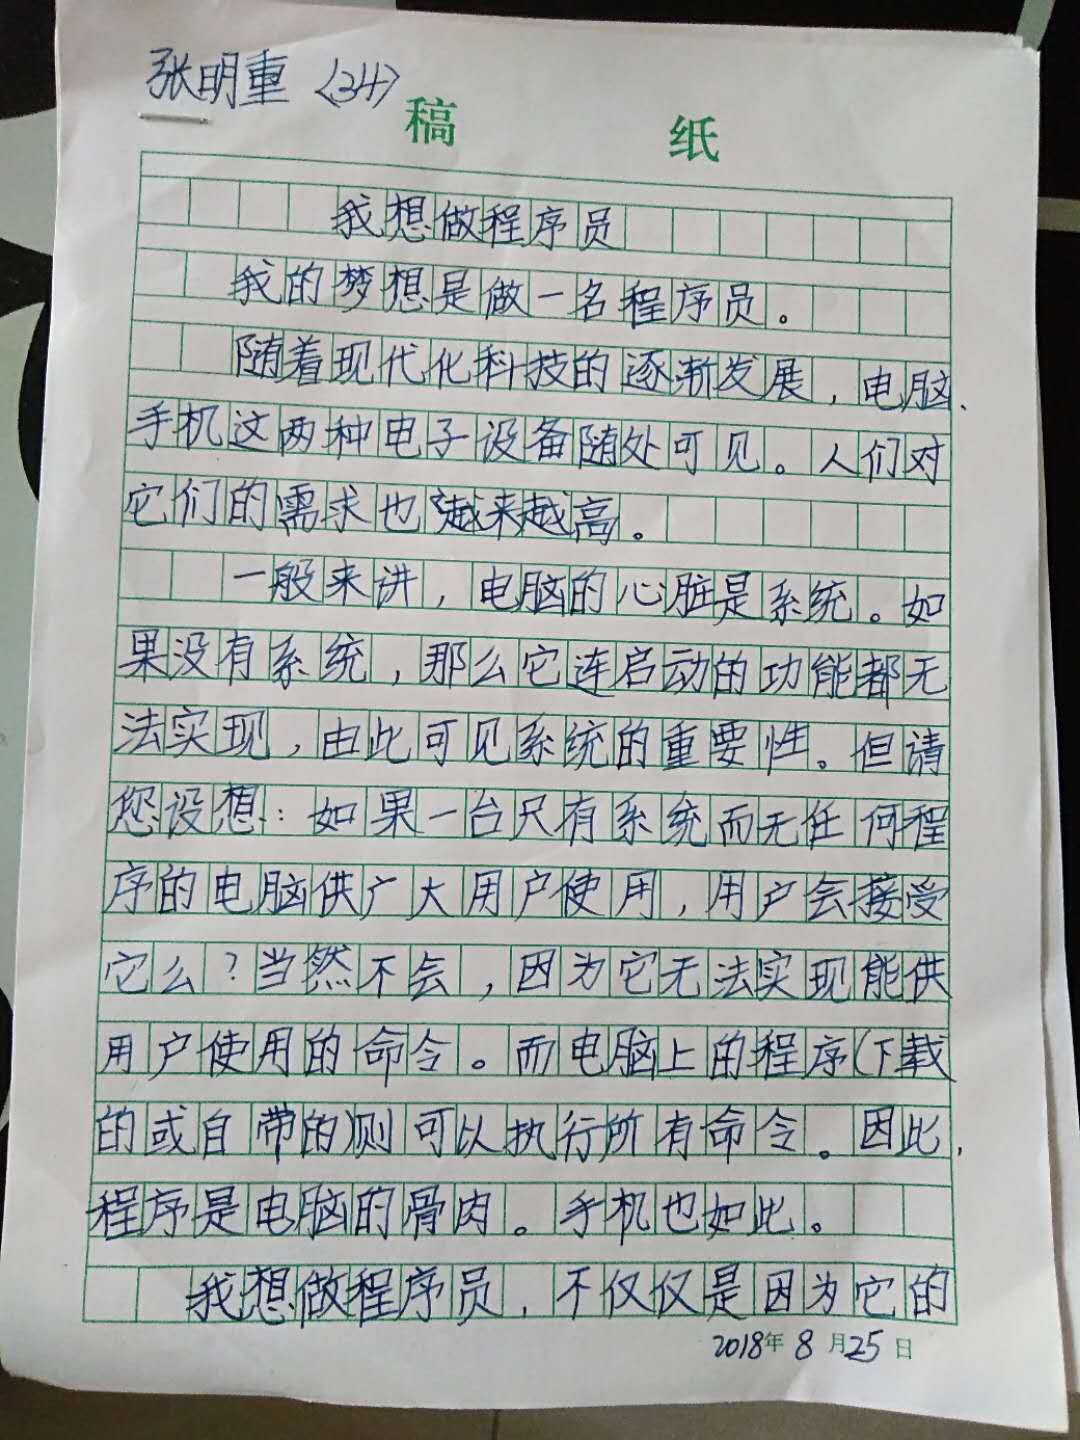 张明重〈34〉
稿 纸
我想做程序员
我的梦想是做一名程序员。
随着现代化科技的逐渐发展，电脑、
手机这两种电子设备随处可见。人们对
它们的需求也越来越高。
一般来讲，电脑的心脏是系统。如
果没有系统，那么它连启动的功能都无
法实现，由此可见系统的重要性。但请
您设想：如果一台只有系统而无任何程
序的电脑供广大用户使用，用户会接受
它么？当然不会，因为它无法实现能供
用户使用的命令。而电脑上的程序(下载
的或自带的)则可以执行所有命令。因此，
程序是电脑的骨肉。手机也如此。
我想做程序员，不仅仅是因为它的
2018年8月25日